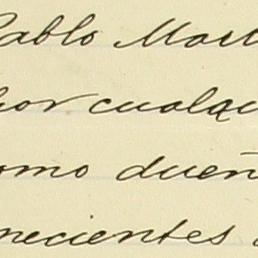 Pablo Mart
por cualqu
omo dueñ
necientes